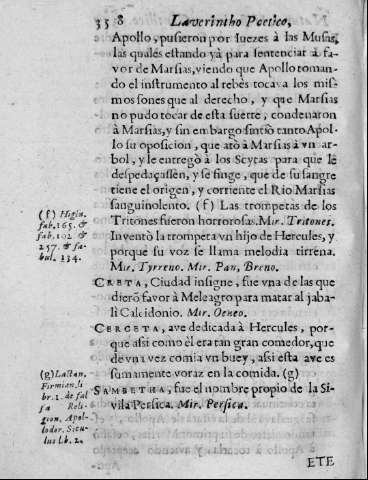 358 Laverintho Poetico,
Apollo, pusieron por Iuezes à las Musas,
las quales estando yà para sentenciar à fa-
vor de Marsias, viendo que Apollo toman-
do el instrumento al rebès tocava los mis-
mos sones que al derecho, y que Marsias
no pudo tocar de esta suerte, condenaron
à Marsias, y sin embargo sintiò tanto Apol-
lo su oposicion, que atò à Marsias à vn ar-
bol, y le entregò à los Scytas para que le
despedaçassen, y se finge, que de su sangre
tiene el origen, y corriente el Rio Marsias
sanguinolento. (f) Las trompetas de los
Tritones fueron horrorosas. Mir. Tritones.
Inventò la trompeta vn hijo de Hercules, y
porque su voz se llama melodia tirrena.
Mir. Tyrreno. Mir. Pan, Breno.
CRETA, Ciudad insigne, fue vna de las que
dierõ favor à Meleagro para matar al jaba-
lì Calcidonio. Mir. Oeneo.
CERCETA, ave dedicada à Hercules, por-
que assi como èl era tan gran comedor, que
de vna vez comia vn buey, assi esta ave es
sumamente voraz en la comida. (g)
SAMBETHA, fue el nombre propio de la Si-
vila Persica. Mir. Persica.
ETE
(f) Higin.
fab. 165. &
fab. 102 &
257. & fa-
bul. 134.
(g) Lactan.
Firmian. li
br. 1. de fal
sa Reli-
gion. Apol-
lodor. Sicu-
lus lib. 2.